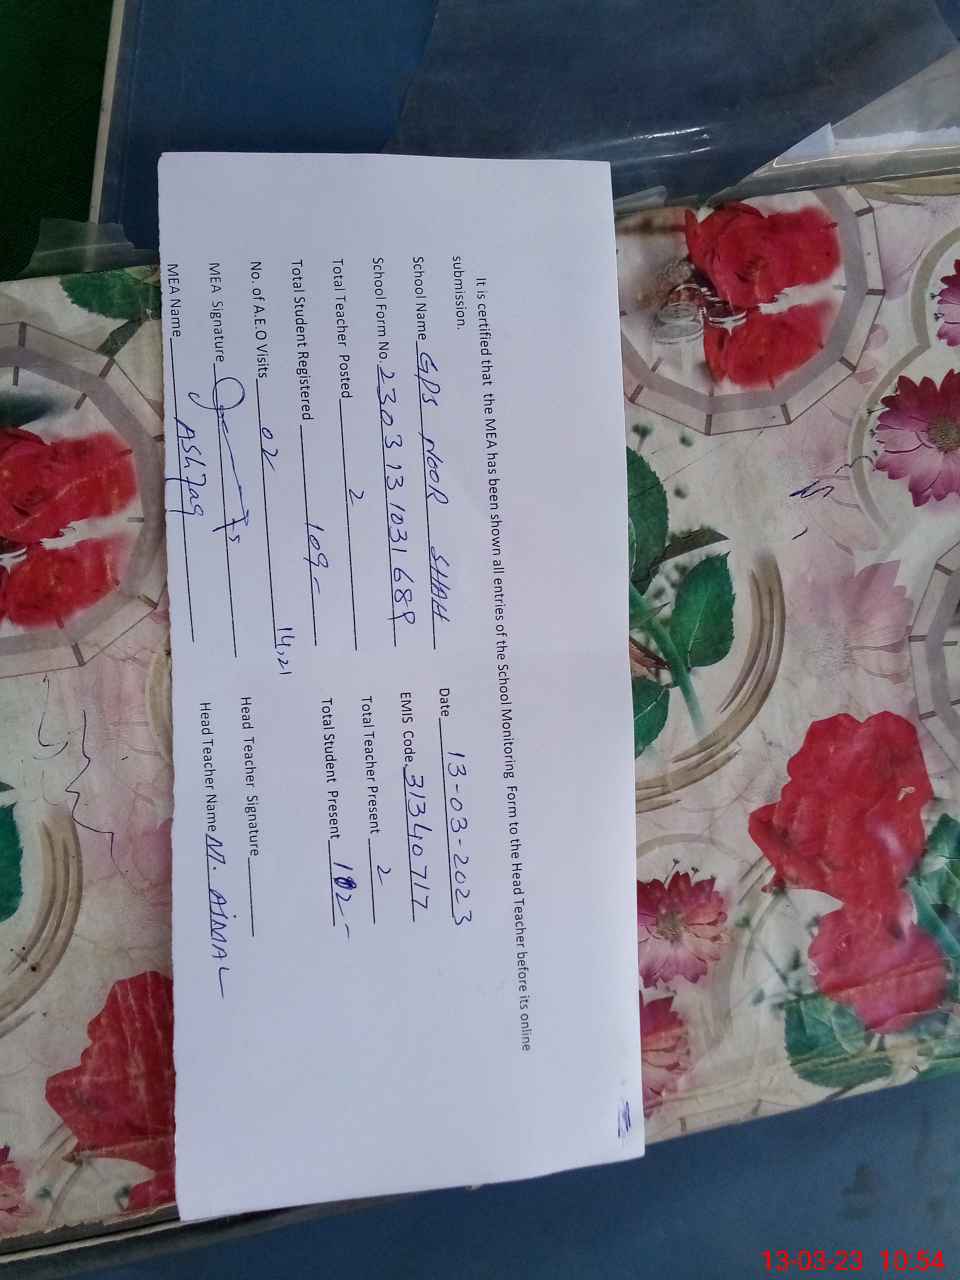 It is certified that the MEA has been shown all entries of the School Monitoring Form to the Head Teacher before its online
submission.
School Name GPS NOOR SHAH Date 13-03-2023
School Form No. 2303131031689 EMIS Code 31340717
Total Teacher Posted 2 Total Teacher Present 2
Total Student Registered 109- Total Student Present 102-
No. of A.E.O Visits 02 14,21
MEA Signature Head Teacher Signature
MEA Name AShfaq Head Teacher Name M. AJMAL
13-03-23 10:54